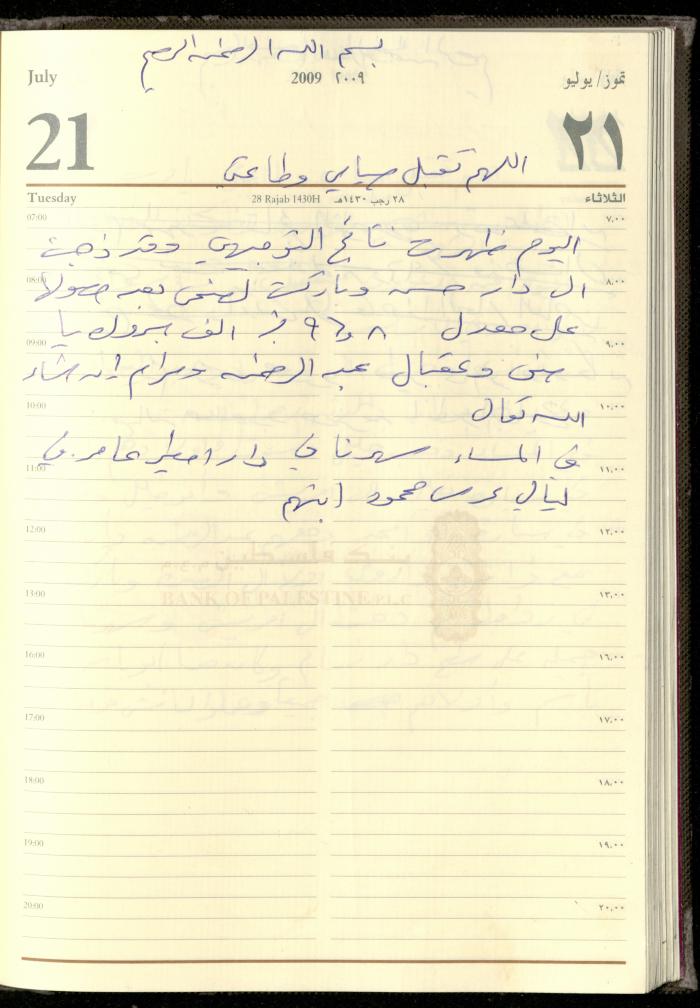 بسم الله الرحمن الرحيم
July 2009 ٢٠٠٩ تموز/يوليو
21 ٢١
اللهم تقبل صيامي وطاعتي
Tuesday 28 Rajab 1430H ٢٨ رجب ١٤٣٠هـ الثلاثاء
07:00 ٧.٠٠
اليوم ظهرت نتائج التوجيهي وقد ذهبت
08:00 ٨.٠٠
الى دار حسن وباركت لضحى بعد حصولها
على معدل ٩٦٫٨ ٪ الف مبروك يا
09:00 ٩.٠٠
ضحى وعقبال عبد الرحمن ومرام إن شاء
10:00 ١٠.٠٠
الله تعالى
في المساء سهرنا في دار امطير عامر في
11:00 ١١.٠٠
ليالي عرس محمود ابنهم
12:00 ١٢.٠٠
بنك فلسطين م.ع.م
BANK OF PALESTINE P.L.C
13:00 ١٣.٠٠
16:00 ١٦.٠٠
17:00 ١٧.٠٠
18:00 ١٨.٠٠
19:00 ١٩.٠٠
20:00 ٢٠.٠٠